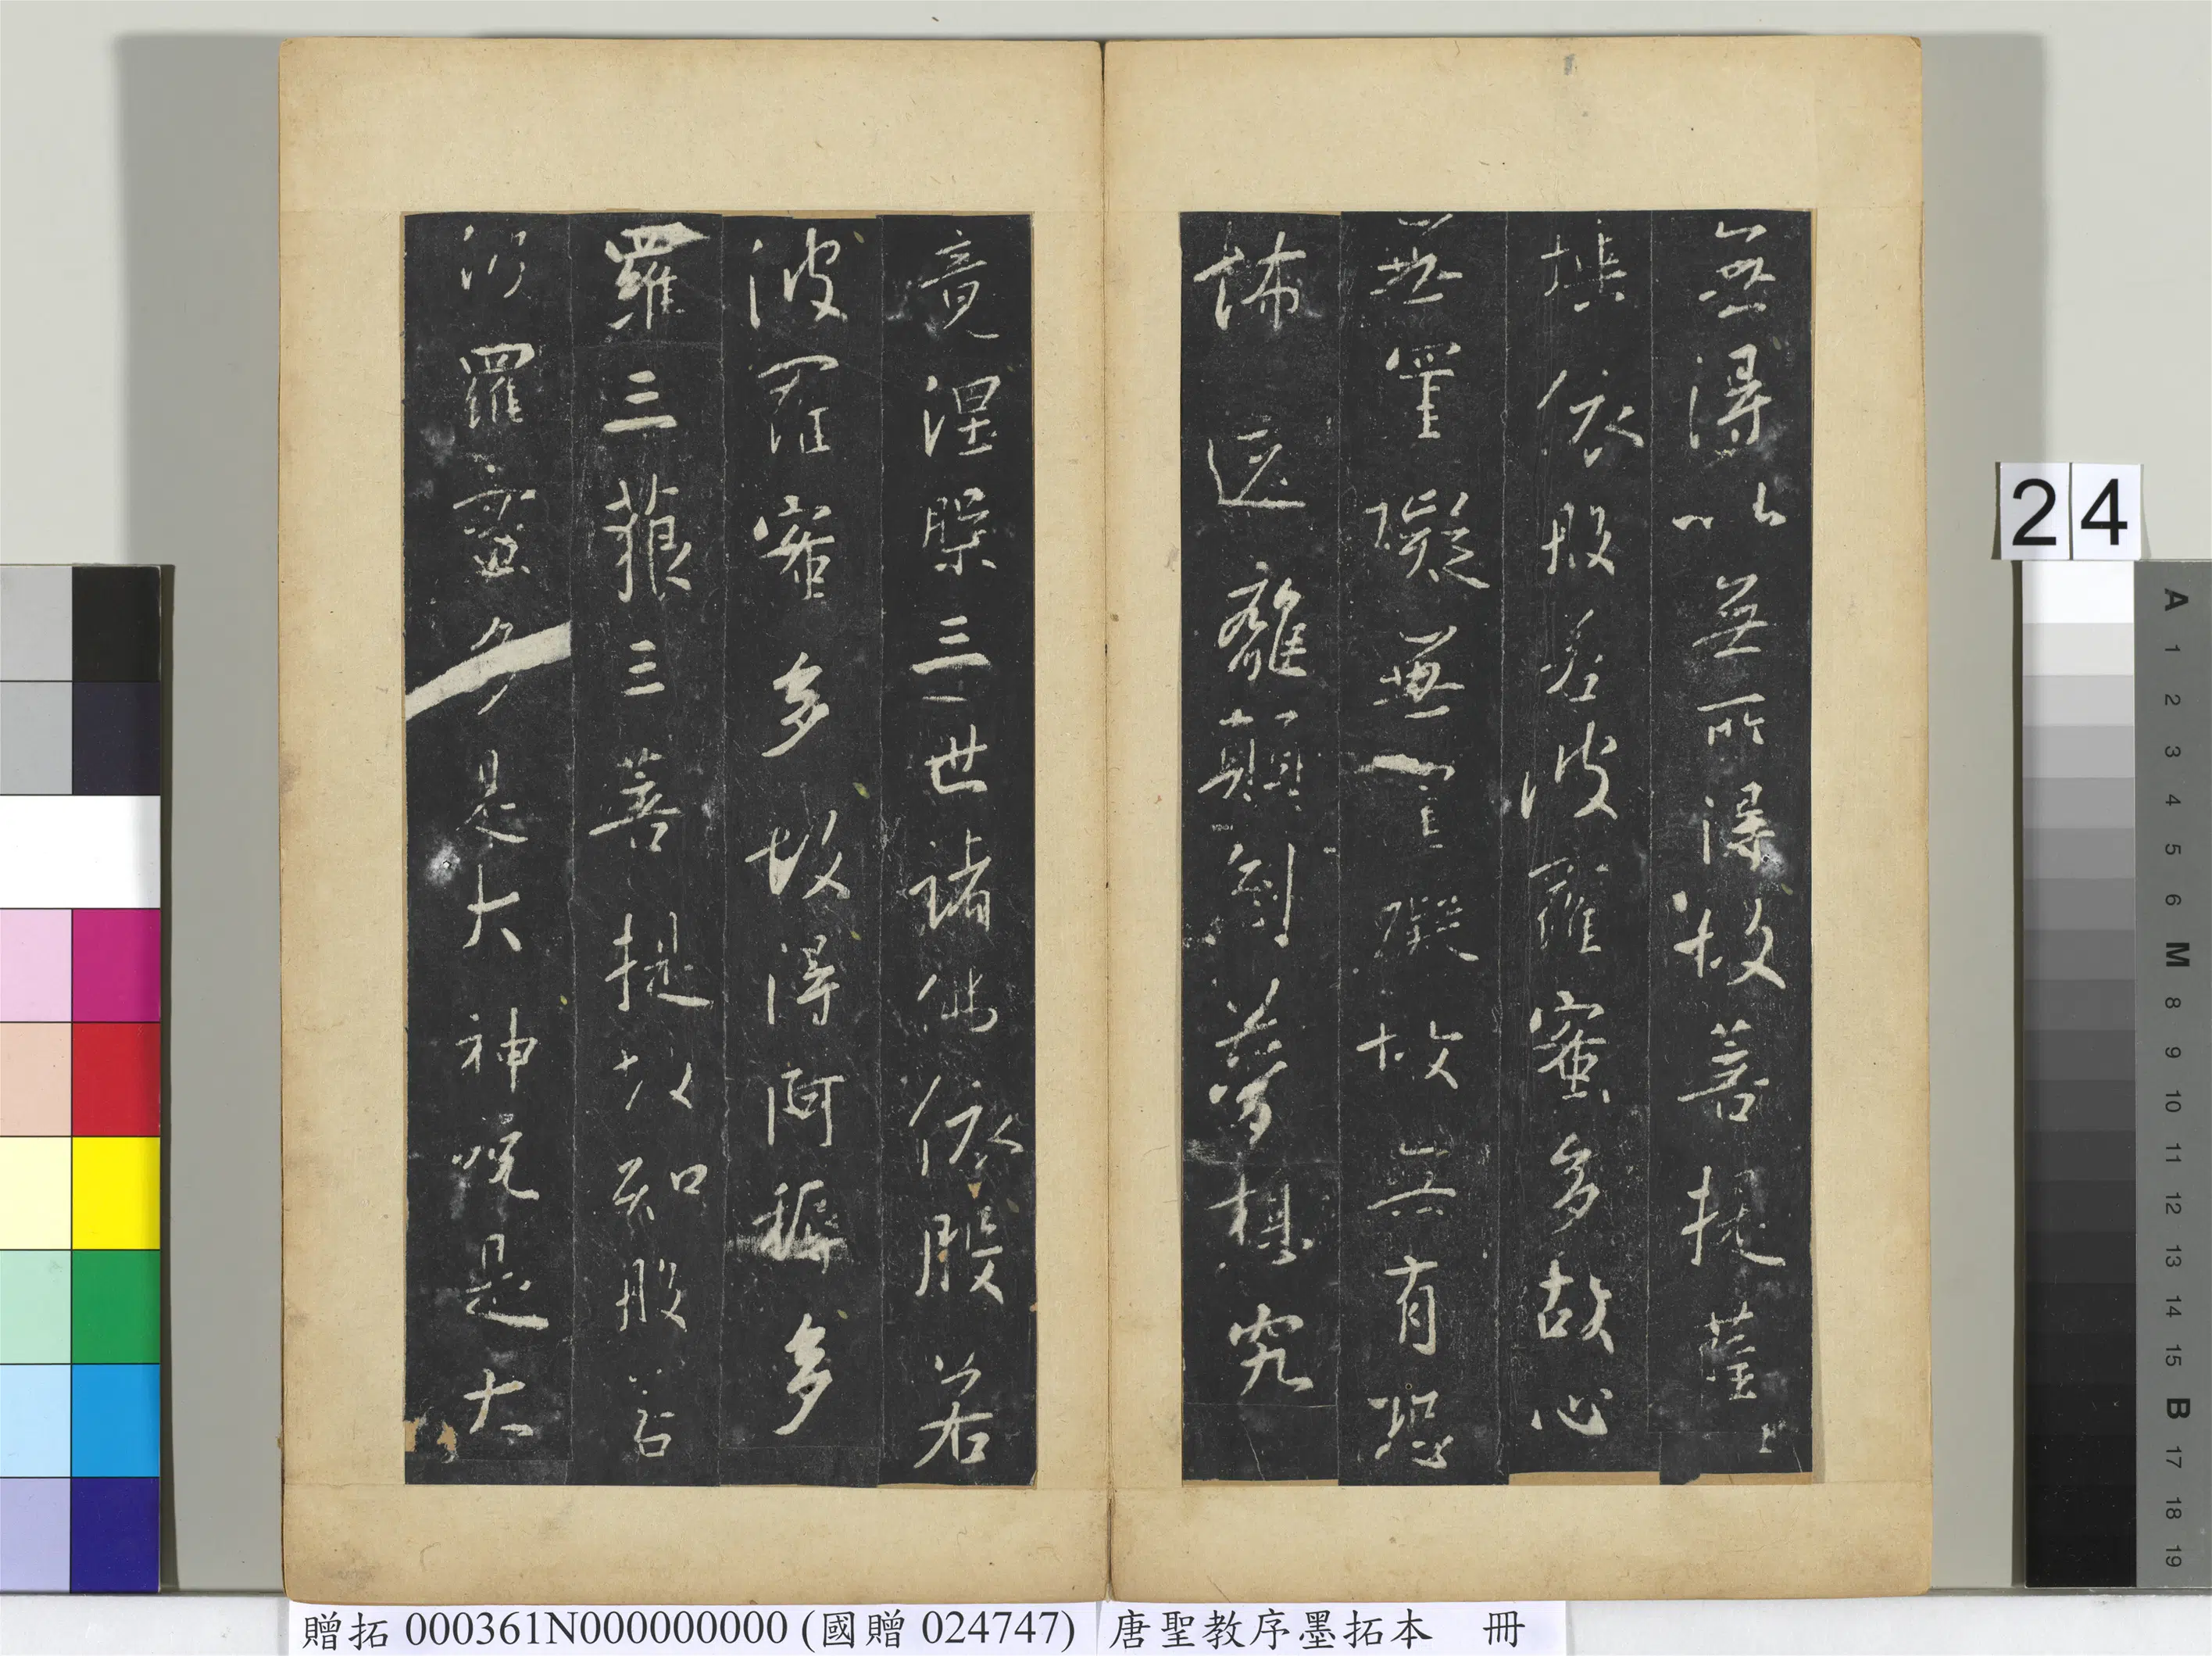 無得以無所得故菩提薩
埵依般若波羅蜜多故心
無罣礙無罣礙故無有恐
怖遠離顛倒夢想究
竟涅槃三世諸佛依般若
波羅蜜多故得阿耨多
羅三藐三菩提故知般若
波羅蜜多是大神呪是大
24
A 1 2 3 4 5 6 M 8 9 10 11 12 13 14 15 B 17 18 19
贈拓 000361N000000000 (國贈 024747) 唐聖教序墨拓本 冊